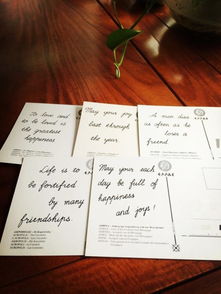 To love and
to be loved is
the greatest
happiness
May your joy
last through
the year.
A man dies
as often as he
loses a
friend.
Life is to
be fortified
by many
friendships.
May your each
day be full of
happiness
and joys!